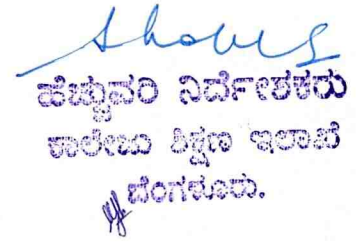 ಹೆಚ್ಚುವರಿ ನಿರ್ದೇಶಕರು
ಕಾಲೇಜು ಶಿಕ್ಷಣ ಇಲಾಖೆ
ಬೆಂಗಳೂರು.